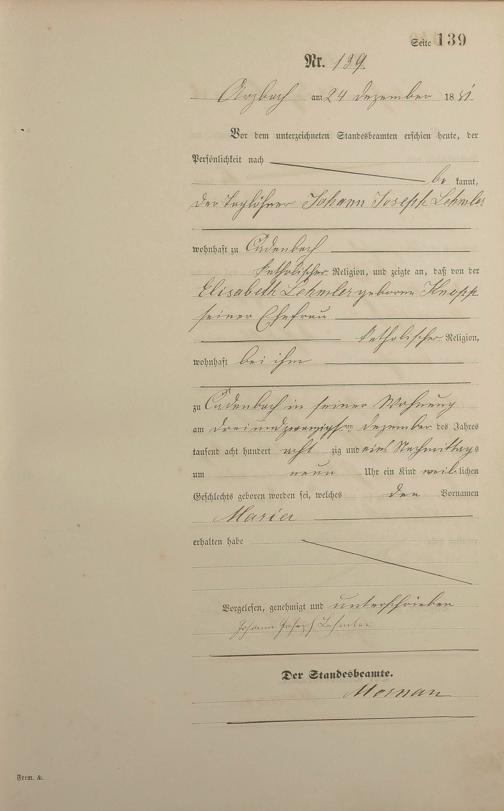 Seite 139
Nr. 139.
Arzbach am 24 Dezember 1881.
Vor dem unterzeichneten Standesbeamten erschien heute, der
Persönlichkeit nach
be kannt,
der Taglöhner Johann Joseph Lehmler
wohnhaft zu Cadenbach
katholischer Religion, und zeigte an, daß von der
Elisabeth Lehmler geborne Knopp
seiner Ehefrau
katholischer Religion,
wohnhaft bei ihm
zu Cadenbach in seiner Wohnung
am dreiundzwanzigsten Dezember des Jahres
tausend acht hundert acht zig und eins Nachmittags
um neun Uhr ein Kind weiblichen
Geschlechts geboren worden sei, welches den Vornamen
Maria
erhalten habe
Vorgelesen, genehmigt und unterschrieben
Johann Joseph Lehmler
Der Standesbeamte.
Form. A.